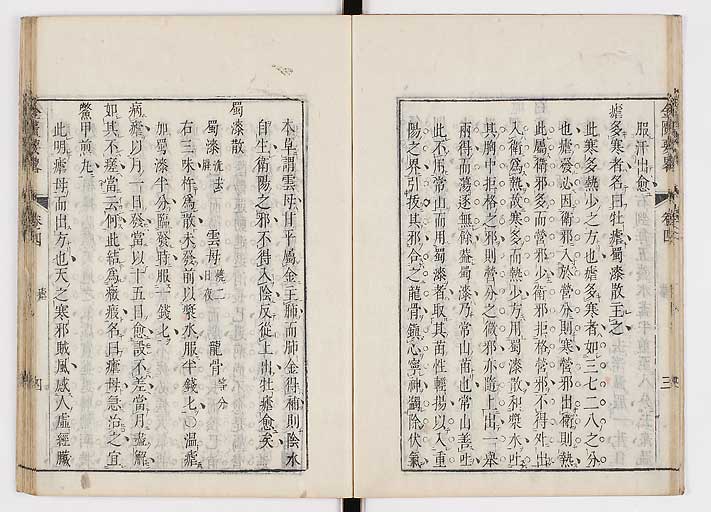 服汗出愈
瘧多寒者名曰牡瘧蜀漆散主之
此寒多熱少之方也瘧多寒者如三七二八之分
也瘧發必因衛邪入於營分則寒營邪出衛則熱
此屬衛邪多而營邪少衛邪拒格營邪不得外出
入衛為熱故寒多而熱少方用蜀漆散和漿水吐
其胸中拒格之邪則營分之微邪亦隨上出一舉
兩得而蕩逐無餘葢蜀漆乃常山苗也常山善吐
此不用常山而用蜀漆者取其苗性輕揚以入重
陽之界引拔其邪合之龍骨鎮心寧神蠲除伏氣
本草謂雲母甘平屬金主肺而肺金得補則陰水
自生衛陽之邪不得入陰反從上出牡瘧愈矣
蜀漆散
蜀漆洗去腥 雲母燒二日夜 龍骨等分
右三味杵為散未發前以漿水服半錢七○溫瘧
加蜀漆半分臨發時服一錢七
病瘧以月一日發當以十五日愈設不差當月盡解
如其不瘥當云何此結為癥瘕名曰瘧母急治之宜
鱉甲煎丸
此明瘧母而出方也天之寒邪賊風感人虛經臟
卷四
瘧
四
三